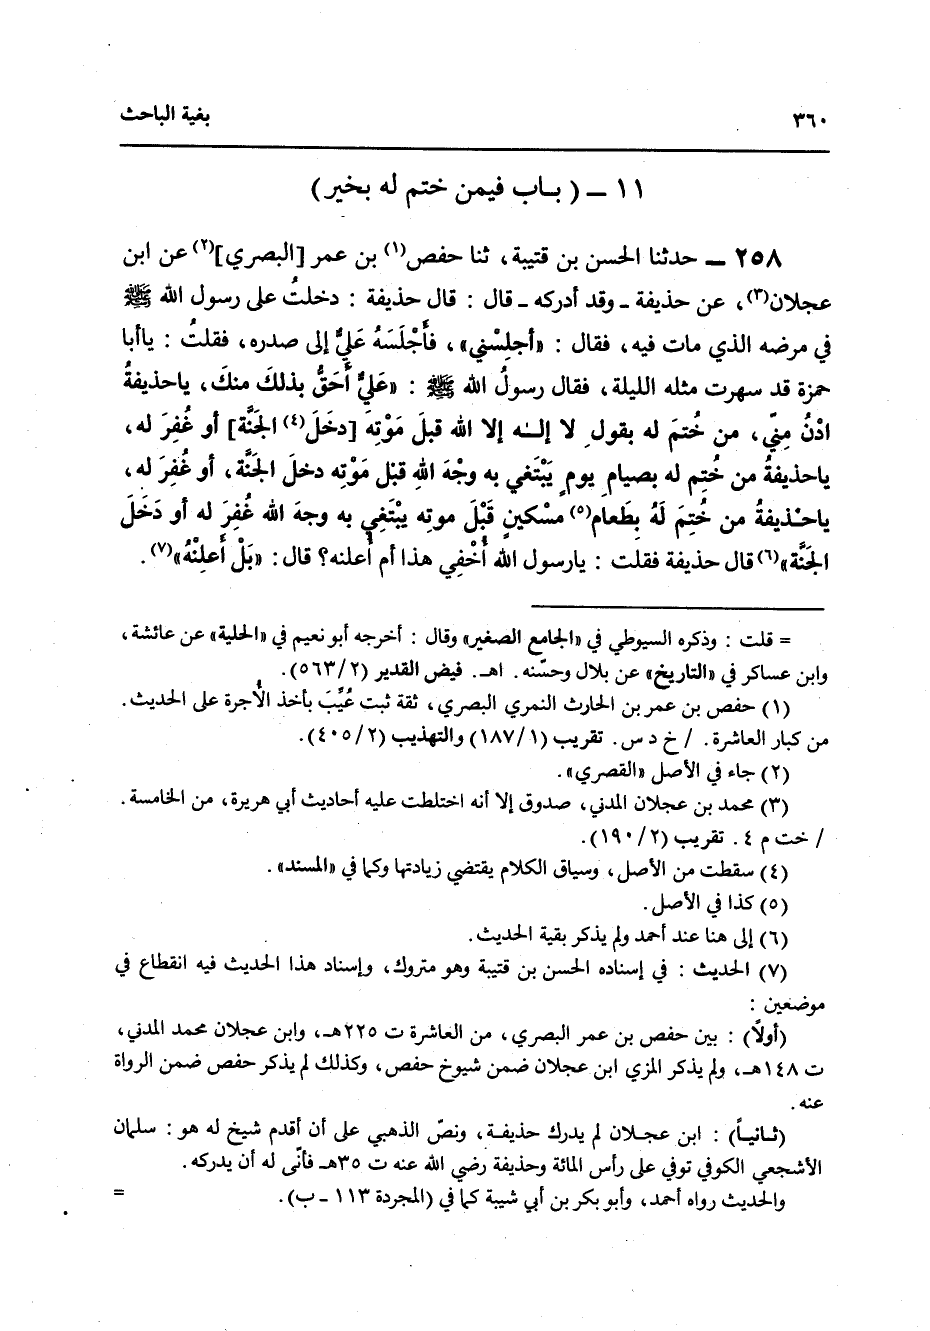 ٣٦٠ بغية الباحث
١١ ــ ( بـاب فيمن ختم له بخير )
٢٥٨ ــ حدثنا الحسن بن قتيبة، ثنا حفص(١) بن عمر [البصري](٢) عن ابن
عجلان(٣)، عن حذيفة ـ وقد أدركه ـ قال : قال حذيفة : دخلتُ على رسول الله ﷺ
في مرضه الذي مات فيه، فقال : «أجلِسْني»، فأَجْلَسَهُ عَليٌّ إلى صدره، فقلتُ : ياأبا
حمزة قد سهرت مثله الليلة، فقال رسولُ الله ﷺ : «عَليٌّ أَحَقُّ بذلكَ منكَ، ياحذيفةُ
ادْنُ مِنِّي، من خُتمَ له بقول لا إلـٰه إلا الله قبلَ مَوْتِه [دخَلَ(٤) الجَنَّة] أو غُفِرَ له،
ياحذيفةُ من خُتِم له بصيام يومٍ يَبْتَغي به وجْهَ اللهِ قبْل مَوْته دخلَ الجَنَّة، أو غُفِرَ له،
ياحْذيفةُ من خُتِمَ لَهُ بِطَعام(٥) مسْكينٍ قَبْلَ موته يبْتَغي به وجهَ الله غُفِرَ له أو دَخَلَ
الجَنَّة»(٦) قال حذيفة فقلت : يارسول الله أُخْفِي هذا أم أُعلنه؟ قال: «بَلْ أَعلِنْهُ»(٧).
= قلت : وذكره السيوطي في «الجامع الصغير» وقال : أخرجه أبو نعيم في «الحلية» عن عائشة،
وابن عساكر في «التاريخ» عن بلال وحسّنه. اهـ. فيض القدير (٥٦٣/٢).
(١) حفص بن عمر بن الحارث النمري البصري، ثقة ثبت عُيِّبَ بأخذ الأُجرة على الحديث.
من كبار العاشرة. / خ د س. تقريب (١٨٧/١) والتهذيب (٤٠٥/٢).
(٢) جاء في الأصل «القصري».
(٣) محمد بن عجلان المدني، صدوق إلا أنه اختلطت عليه أحاديث أبي هريرة، من الخامسة.
/ خت م ٤. تقريب (١٩٠/٢).
(٤) سقطت من الأصل، وسياق الكلام يقتضي زيادتها وكما في «المسند».
(٥) كذا في الأصل.
(٦) إلى هنا عند أحمد ولم يذكر بقية الحديث.
(٧) الحديث : في إسناده الحسن بن قتيبة وهو متروك، وإسناد هذا الحديث فيه انقطاع في
موضعين :
(أولاً) : بين حفص بن عمر البصري، من العاشرة ت ٢٢٥هـ، وابن عجلان محمد المدني،
ت ١٤٨هـ، ولم يذكر المزي ابن عجلان ضمن شيوخ حفص، وكذلك لم يذكر حفص ضمن الرواة
عنه.
(ثـانيـاً) : ابن عجـلان لم يدرك حذيفـة، ونصّ الذهبي على أن أقدم شيخ له هو : سلمان
الأشجعي الكوفي توفي على رأس المائة وحذيفة رضي الله عنه ت ٣٥هـ فأنّى له أن يدركه.
والحديث رواه أحمد، وأبو بكر بن أبي شيبة كما في (المجردة ١١٣ ـ ب). =